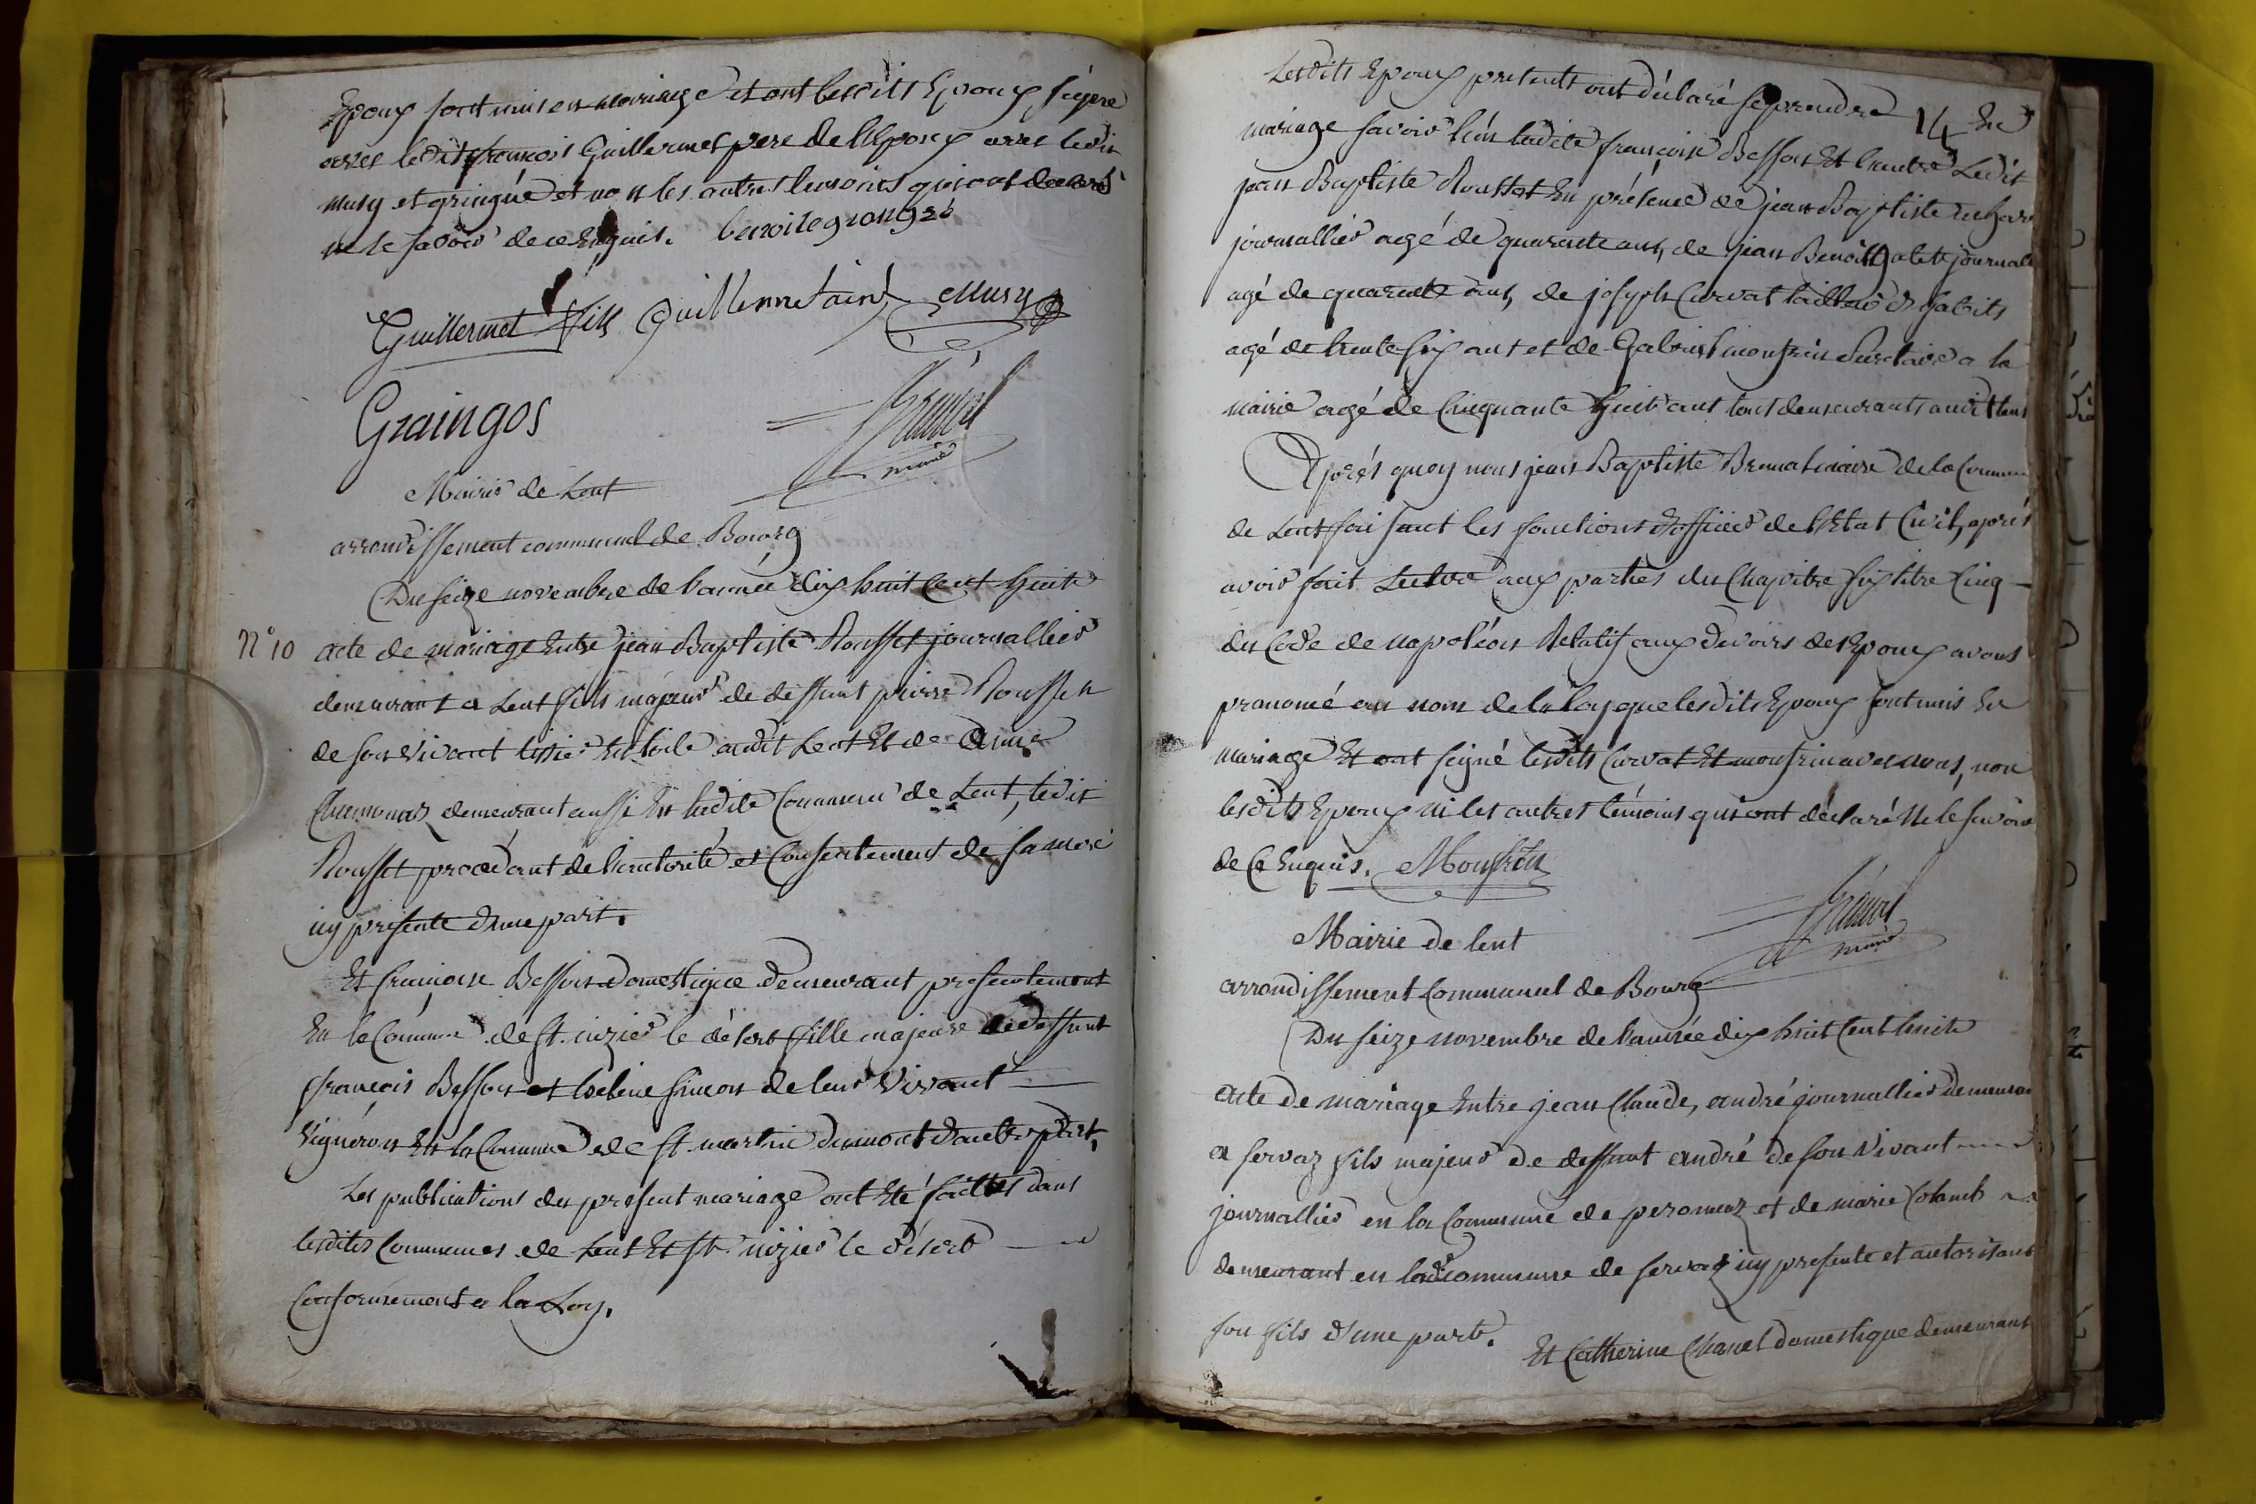 Epoux sont unis en mariage et ont lesdits Epoux signé
avec ledit françois Guillermet pere de l'Epoux avec ledit
musy et gringué et non les autres temoins qui ont declaré
ne le savoir de ce Enquis. benoite grangé
Guillermet fils Guillermetainé Musy
Graingos
Brunot
maire
Mairie de Lent
arrondissement communal de Bourg
Du seize novembre de l'année dix huit Cent huit
N° 10 acte de mariage Entre jean Baptiste Rousset journallier
demeurant a Lent fils majeur de deffunt pierre Rousset
de son vivant tissier En toile audit Lent Et de
Chamonas demeurant aussi En ladite Commune de Lent, ledit
Rousset procédant de l'autorité et Consentement de sa mere
icy présente d'une part.
Et françoise Besson domestique demeurant presentement
En la Commune de St. nizier le désert fille majeure de deffunt
françois Besson et helene simon de leur Vivant
Vignérons En la Commune de St. martin dumont d'autre part,
Les publications du present mariage ont Eté faittes dans
lesdites Communes de Lent Et St. nizier le désert
Conformement a la Loy.
14
Lesdits Epoux presents ont déclaré se prendre En
mariage savoir l'un ladite françoise Besson Et l'autre Ledit
jean Baptiste Rousset En présence de jean Baptiste
journallier agé de quarante ans, de jean Benoit journall
agé de quarante ans, de joseph Curvat tailleur d'habits
agé de trente six ans et de Gabriel monfrin secretaire a la
mairie agé de Cinquante huit ans tous demeurants audit Lent
Après quoy nous jean Baptiste Brunot maire de la Commune
de Lent faisant les fonctions d'officier de l'Etat Civil, après
avoir fait Lecture aux parties du Chapitre six titre Cinq
du Code de napoléon Relatif aux devoirs des Epoux avons
prononcé au nom de la Loy que lesdits Epoux sont unis En
mariage Et ont signé lesdits Curvat Et monfrin avec nous, non
lesdits Epoux ni les autres témoins qui ont déclaré Ne le savoir
de Ce Enquis. Monfrin
Brunot
maire
Mairie de lent
arrondissement Communal de Bourg
Du seize novembre de l'année dix huit Cent huit
acte de mariage Entre jean Claude, andré journallier demeuran
a servaz fils majeur de deffunt andré de son Vivant
journallier en la Commune de peronnaz et de marie Colomb
demeurant en lad. commune de servaz icy presente et autorisant
son fils d'une part.
Et Catherine Chanel domestique demeurant